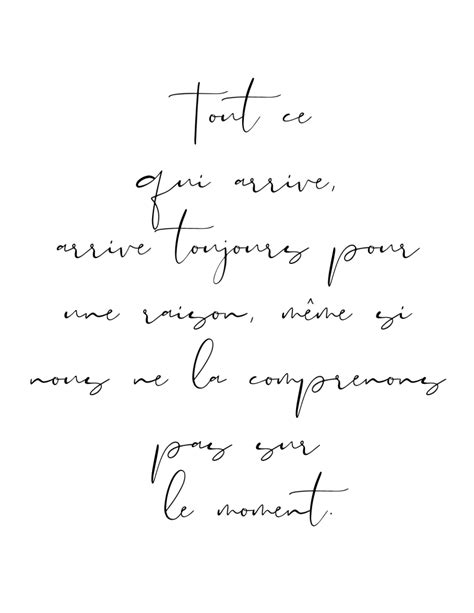 Tout ce
qui arrive,
arrive toujours pour
une raison, même si
nous ne la comprenons
pas sur
le moment.